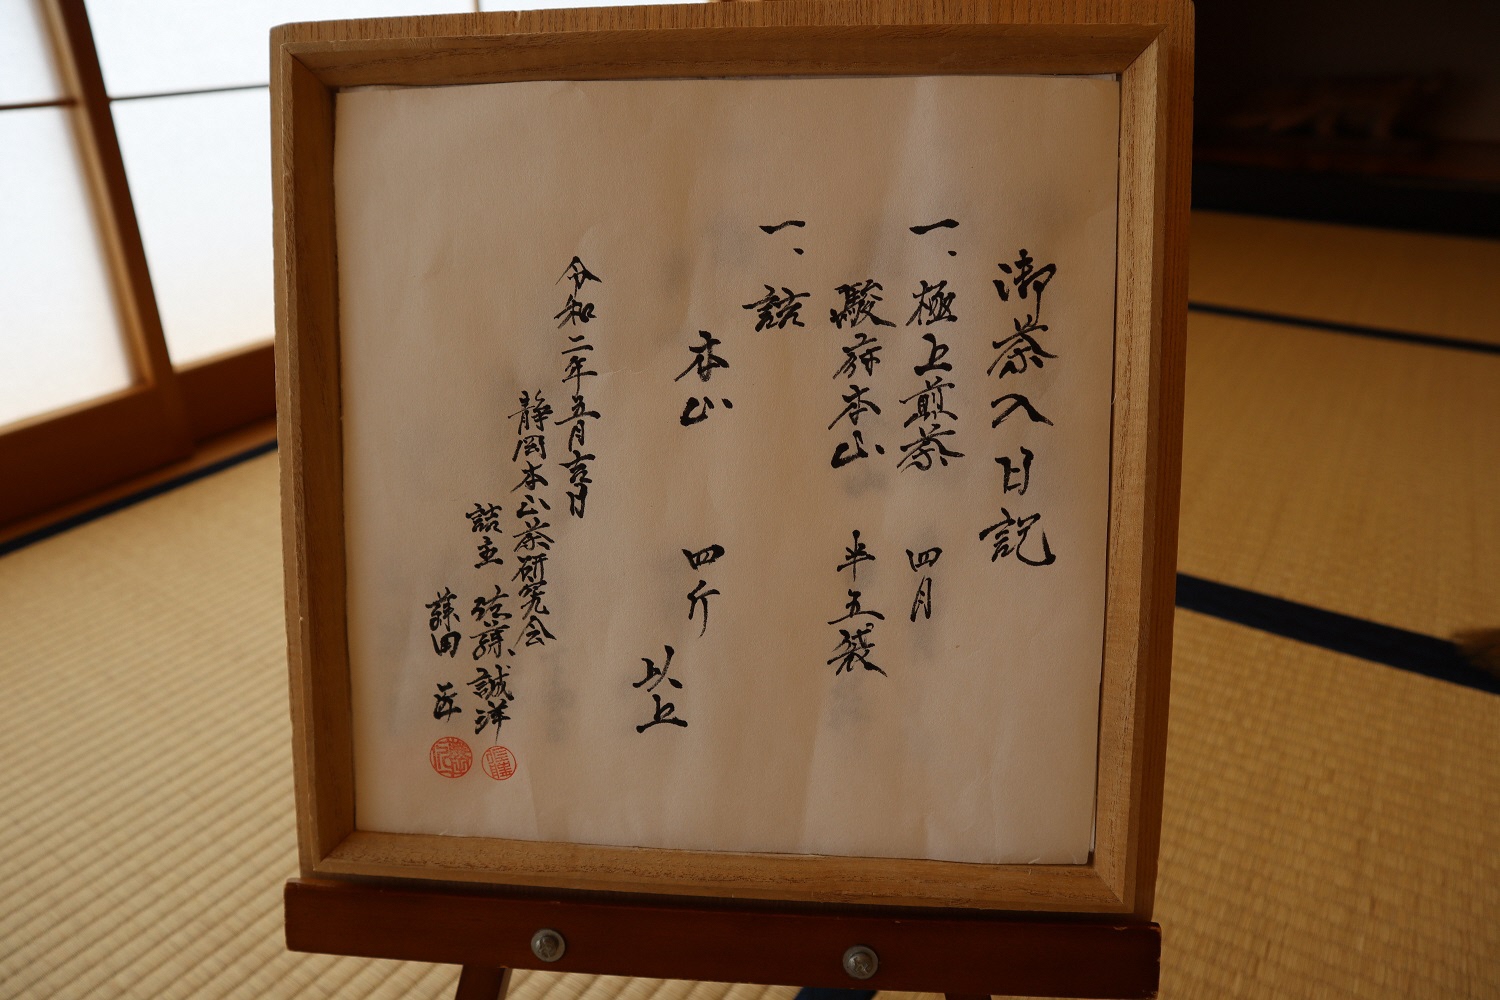 御茶入日記
一、極上煎茶 四月
駿府本山 半五袋
一、詰
本山 四斤
以上
令和二年五月吉日
静岡本山茶研究会
詰主 誠洋
田